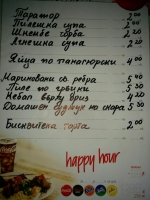 Таратор 2.00
Пилешка супа 2.00
Шкембе чорба 2.20
Агнешка супа 2.20
Яйца по панагюрски 4.00
Мариновани св. ребра 5.40
Пиле по гръцки 4.70
Кебап върху ориз 4.50
Домашен суджук на скара 5.50
Бисквитена торта 2.00
happy hour